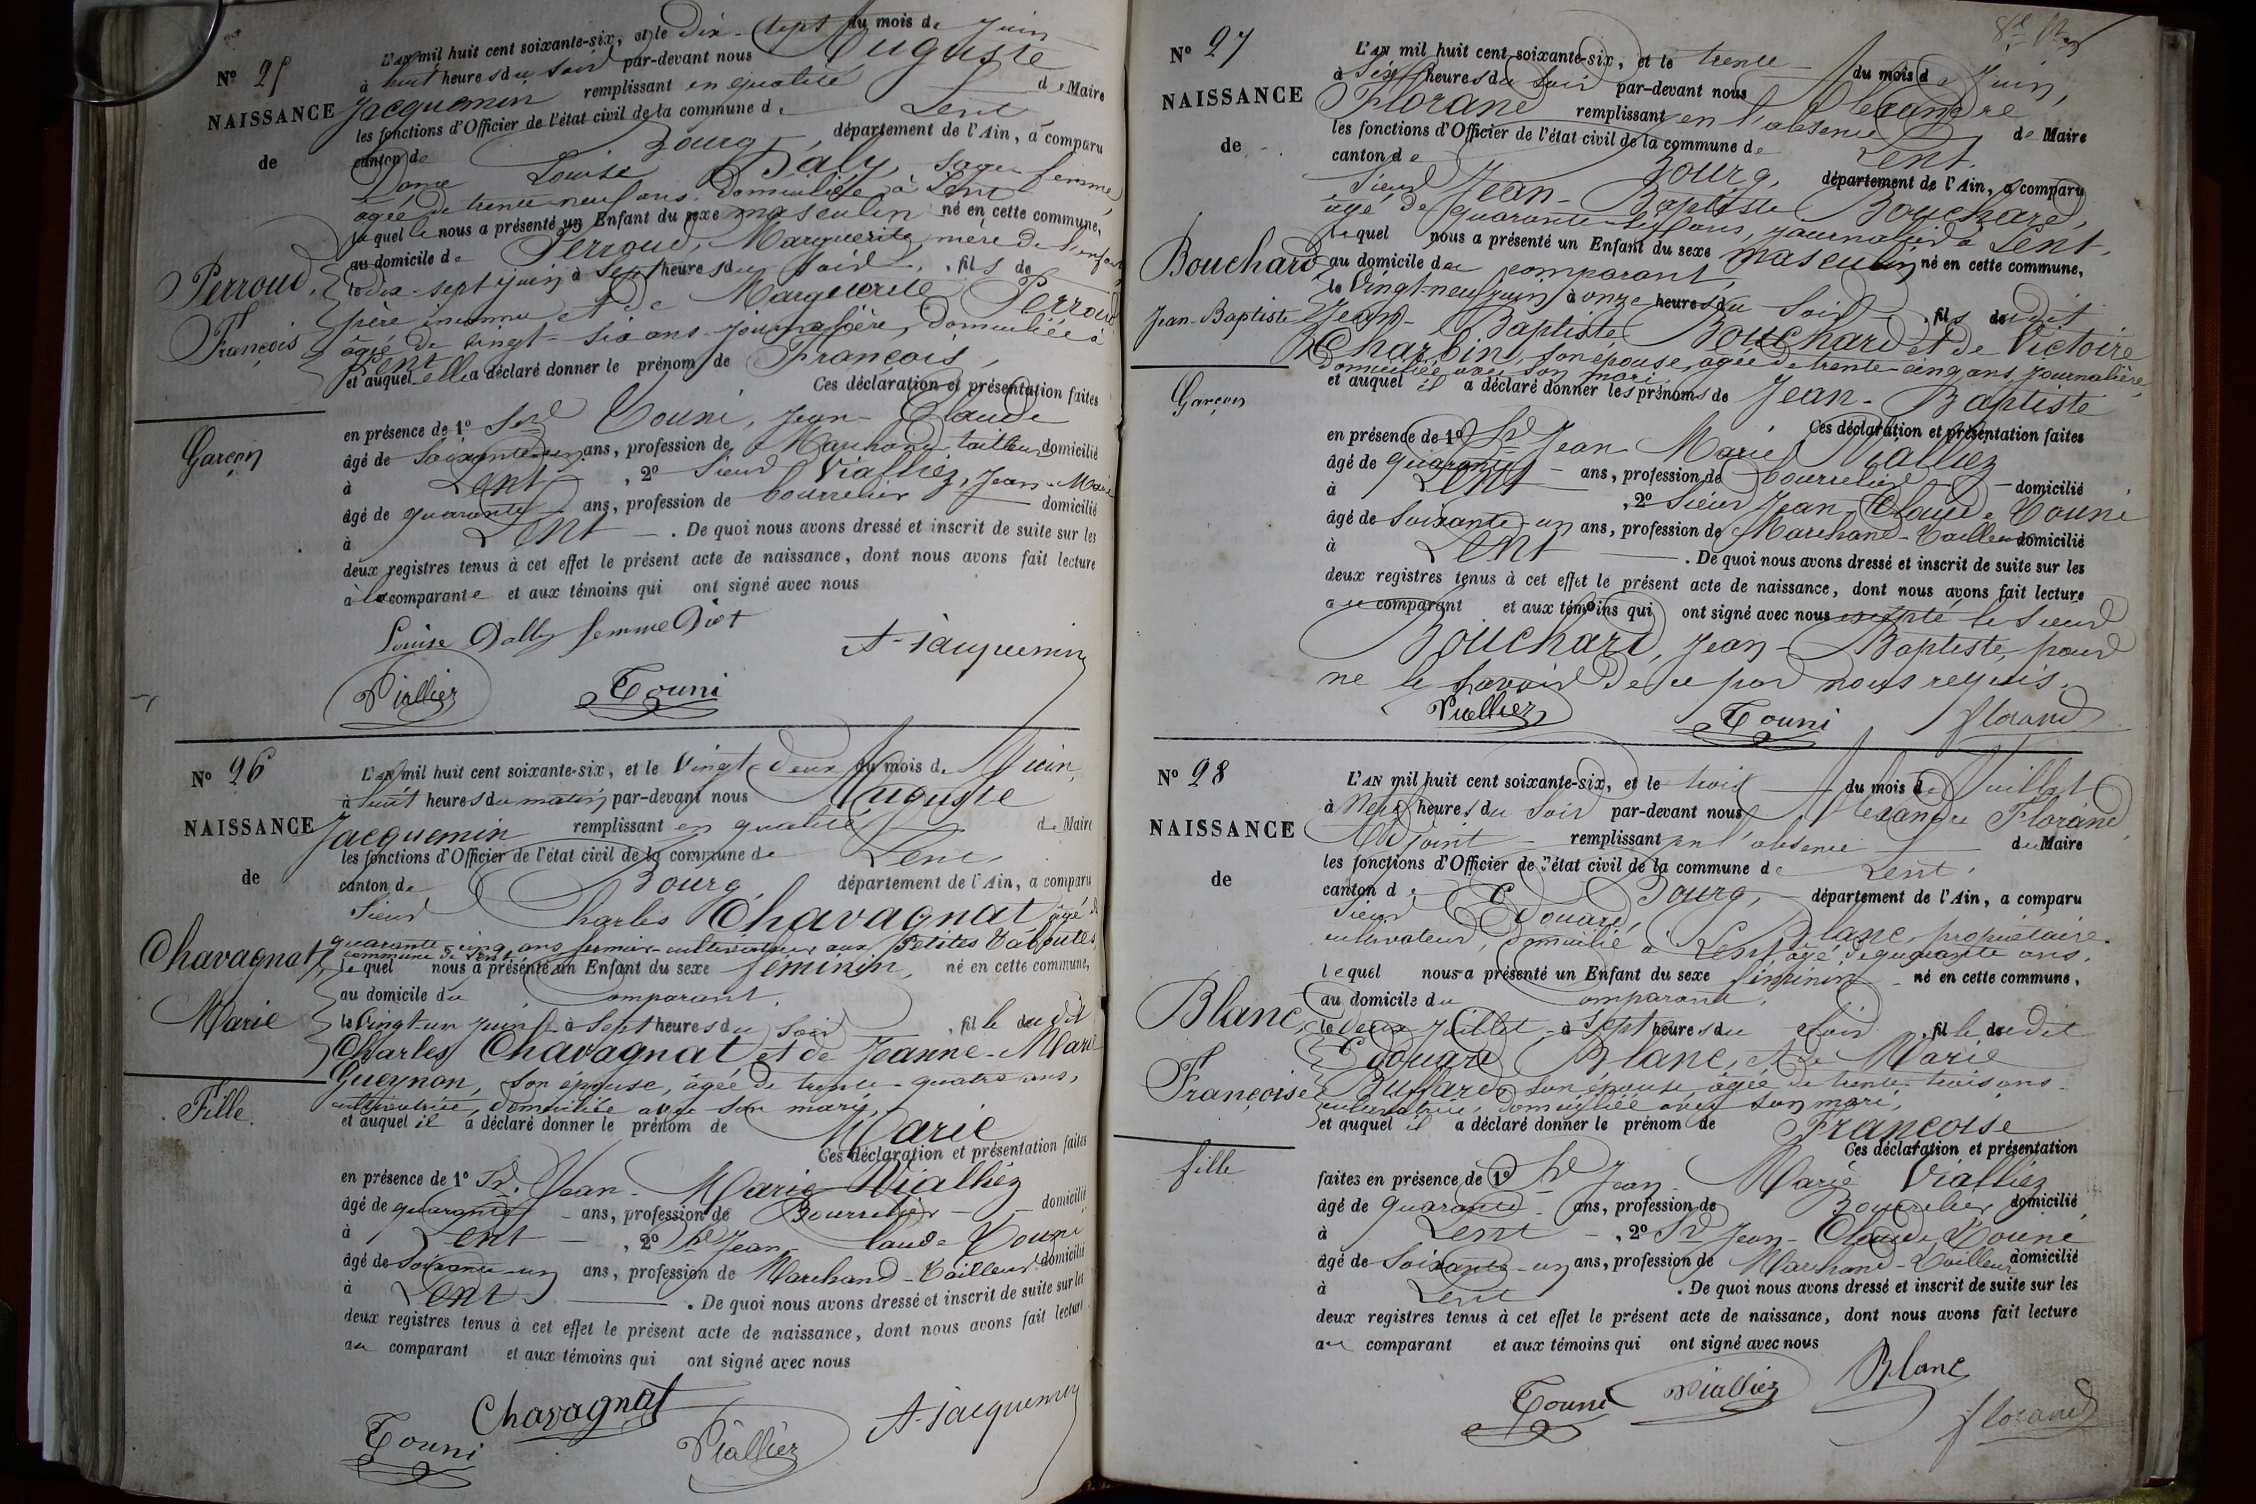 N° 25
NAISSANCE
de
Perroud,
François
Garçon
L'AN mil huit cent soixante-six, et le dix-sept du mois de Juin
à huit heures du soir par-devant nous Auguste
Jacquemin remplissant en qualité de Maire
les fonctions d'Officier de l'état civil de la commune de Lent
canton de Bourg, département de l'Ain, a comparu
Dame Louise Daly, sage femme,
âgée de trente neuf ans, domiciliée à Lent
laquelle nous a présenté un Enfant du sexe masculin né en cette commune,
au domicile de Perroud, Marguerite, mère de l'enfant
le dix-sept juin à sept heures du soir, fils de
père inconnu et de Marguerite Perroud
âgée de vingt-six ans journalière, domiciliée à
Lent
et auquel elle a déclaré donner le prénom de François,
Ces déclaration et présentation faites
en présence de 1° Sr Touni, Jean-Claude
âgé de soixante-un ans, profession de Marchand tailleur domicilié
à Lent, 2° Sieur Vialliez, Jean-Marie
âgé de quarante ans, profession de bourrelier domicilié
à Lent. De quoi nous avons dressé et inscrit de suite sur les
deux registres tenus à cet effet le présent acte de naissance, dont nous avons fait lecture
à la comparante et aux témoins qui ont signé avec nous
Louise Dally femme Diot
A. Jacquemin
Vialliez Touni
N° 26
NAISSANCE
de
Chavagnat,
Marie
Fille
L'AN mil huit cent soixante-six, et le vingt-deux du mois de Juin,
à huit heures du matin, par-devant nous Auguste
Jacquemin remplissant en qualité de Maire
les fonctions d'Officier de l'état civil de la commune de Lent,
canton de Bourg, département de l'Ain, a comparu
Sieur Charles Chavagnat âgé de
quarante-cinq ans fermier cultivateur aux Petites
commune de Lent
lequel nous a présenté un Enfant du sexe féminin, né en cette commune,
au domicile du Comparant,
le vingt un juin à sept heures du soir, fille du dit
Charles Chavagnat et de Jeanne-Marie
Gueynon, son épouse, âgée de trente-quatre ans,
cultivatrice, domiciliée avec son mari,
et auquel il a déclaré donner le prénom de Marie
Ces déclaration et présentation faites
en présence de 1° Sr. Jean-Marie Vialliez
âgé de quarante ans, profession de Bourrelier domicilié
à Lent, 2° Sr Jean-Claude Touni
âgé de soixante-un ans, profession de Marchand-Tailleur domicilié
à Lent. De quoi nous avons dressé et inscrit de suite sur les
deux registres tenus à cet effet le présent acte de naissance, dont nous avons fait lecture
au comparant et aux témoins qui ont signé avec nous
Chavagnat A. Jacquemin
Touni Vialliez
N° 27
NAISSANCE
de
Bouchard
Jean-Baptiste
Garçon
L'AN mil huit cent soixante-six, et le trente du mois de Juin,
à six heures du soir par-devant nous Alexandre
Florand remplissant en l'absence de Maire
les fonctions d'Officier de l'état civil de la commune de Lent,
canton de Bourg, département de l'Ain, a comparu
Sieur Jean-Baptiste Bouchard,
âgé de quarante-six ans, journalier à Lent,
lequel nous a présenté un Enfant du sexe masculin né en cette commune,
au domicile du comparant,
le vingt-neuf juin à onze heures du soir, fils dudit
Jean-Baptiste Bouchard et de Victoire
Charbin, son épouse, âgée de trente-cinq ans, journalière,
domiciliée avec son mari
et auquel il a déclaré donner les prénoms de Jean-Baptiste
Ces déclaration et présentation faites
en présence de 1° Sr Jean Marie Vialliez
âgé de quarante ans, profession de bourrelier domicilié
à Lent, 2° Sieur Jean-Claude Touni
âgé de soixante-un ans, profession de Marchand-Tailleur domicilié
à Lent. De quoi nous avons dressé et inscrit de suite sur les
deux registres tenus à cet effet le présent acte de naissance, dont nous avons fait lecture
au comparant et aux témoins qui ont signé avec nous excepté le Sieur
Bouchard, Jean-Baptiste, pour
ne le savoir de ce par nous requis.
Vialliez Touni Florand
N° 28
NAISSANCE
de
Blanc,
Françoise
fille
L'AN mil huit cent soixante-six, et le trois du mois de Juillet
à neuf heures du soir par-devant nous Alexandre Florand,
Adjoint remplissant en l'absence du Maire
les fonctions d'Officier de l'état civil de la commune de Lent,
canton de Bourg, département de l'Ain, a comparu
Sieur Edouard, Blanc, propriétaire
cultivateur, domicilié à Lent, âgé de quarante ans,
lequel nous a présenté un Enfant du sexe féminin né en cette commune,
au domicile du Comparant,
le deux Juillet, à sept heures du soir, fille du dit
Edouard Blanc, et de Marie
Buffard, son épouse, âgée de trente-trois ans
cultivatrice, domiciliée avec son mari,
et auquel il a déclaré donner le prénom de Françoise
Ces déclaration et présentation
faites en présence de 1° Sr Jean-Marie Vialliez
âgé de quarante ans, profession de Bourrelier, domicilié
à Lent, 2° Sr Jean-Claude Touni
âgé de soixante-un ans, profession de Marchand-Tailleur domicilié
à Lent. De quoi nous avons dressé et inscrit de suite sur les
deux registres tenus à cet effet le présent acte de naissance, dont nous avons fait lecture
au comparant et aux témoins qui ont signé avec nous
Touni Vialliez Blanc
Florand